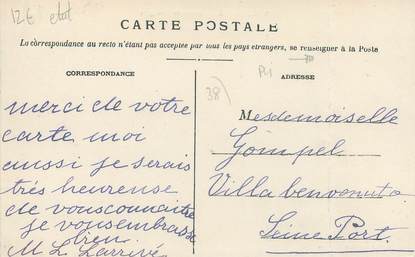 12€ etat
CARTE POSTALE
La correspondance au recto n'étant pas acceptée par tous les pays étrangers, se renseigner à la Poste
CORRESPONDANCE
merci de votre
carte moi
aussi je serais
très heureuse
de vous connaitre
je vous embrasse
bien
M L Larrivé
ADRESSE
38)
Mesdemoiselle
Gompel
Villa benvenuto
Seine Port.